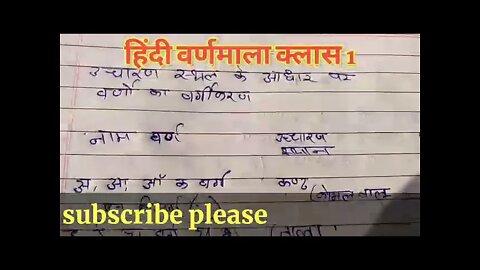 हिंदी वर्णमाला क्लास 1
उच्चारण स्थल के आधार पर
वर्णो का वर्गीकरण
नाम वर्ण उच्चारण
स्थान
अ, आ, ऑ क वर्ग कण्ठ (कोमल तालु
subscribe please